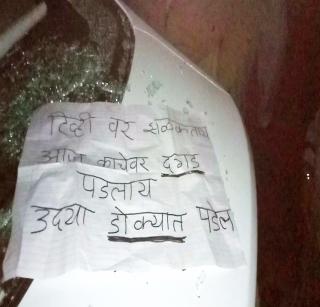 टिव्ही वर
आज काचेवर दगड
पडलाय
उदया डोक्यात पडेल